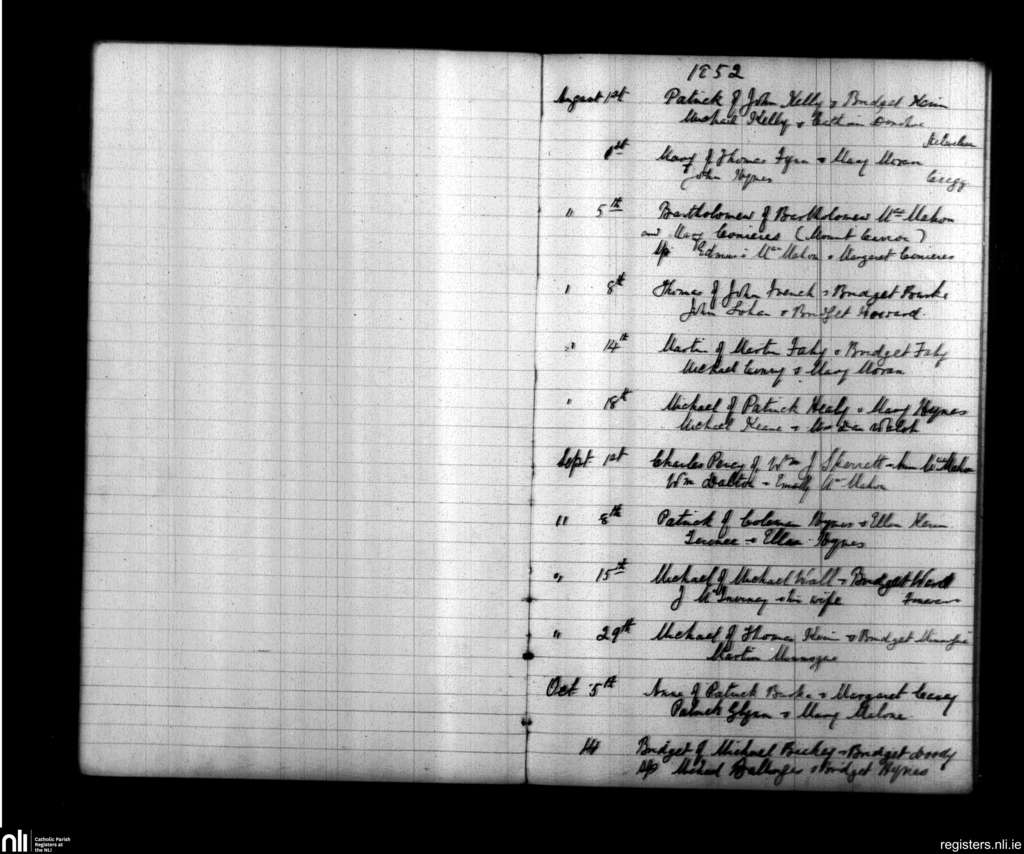 1852
August 1st Patrick of John Kelly & Bridget
Michael Kelly &
1st Mary of Thomas Fynn & Mary Moran
John Hynes Cregg
" 5th Bartholomew of Bartholomew McMahon
and Mary Comieres (Mount
Sp Edmund McMahon & Margaret Comieres
" 8th Thomas of John French & Bridget Burke
John Lohan & Bridget Howard
" 14th Martin of Martin Fahy & Bridget Fahy
Michael & Mary Moran
" 18th Michael of Patrick Healy & Mary Hynes
Michael Keane & Walsh
Sept 1st Charles Percy of Wm J Skerrett & Ann McMahon
Wm Dalton & Emily McMahon
" 8th Patrick of Coleman Hynes & Ellen
Terence & Ellen Hynes
" 15th Michael of Michael Wall & Bridget Ward
J McInerney & his wife
" 29th Michael of Thomas & Bridget
Martin
Oct 5th Anne of Patrick Burke & Margaret Casey
Patrick Glynn & Mary Malone
14 Bridget of Michael & Bridget
Sp Michael & Bridget Hynes
nli
Catholic Parish
Registers at
the NLI
registers.nli.ie